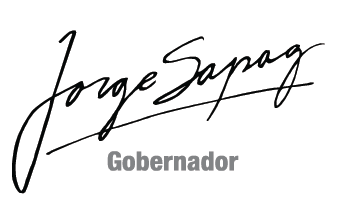 Jorge Sapag
Gobernador